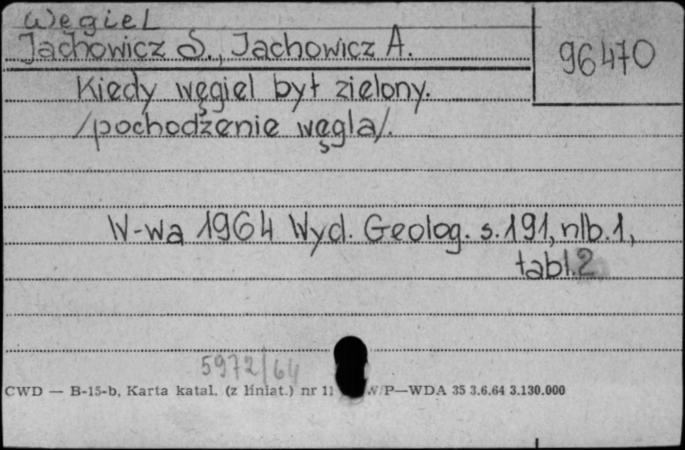 Węgiel
Jachowicz S., Jachowicz A.
96470
Kiedy węgiel był zielony.
/pochodzenie węgla/.
W-wa 1964 Wyd. Geolog. s.191, nlb.1,
tabl.2
5972/64
CWD — B-15-b, Karta katal. (z liniat.) nr 11 W/P—WDA 35 3.6.64 3.130.000